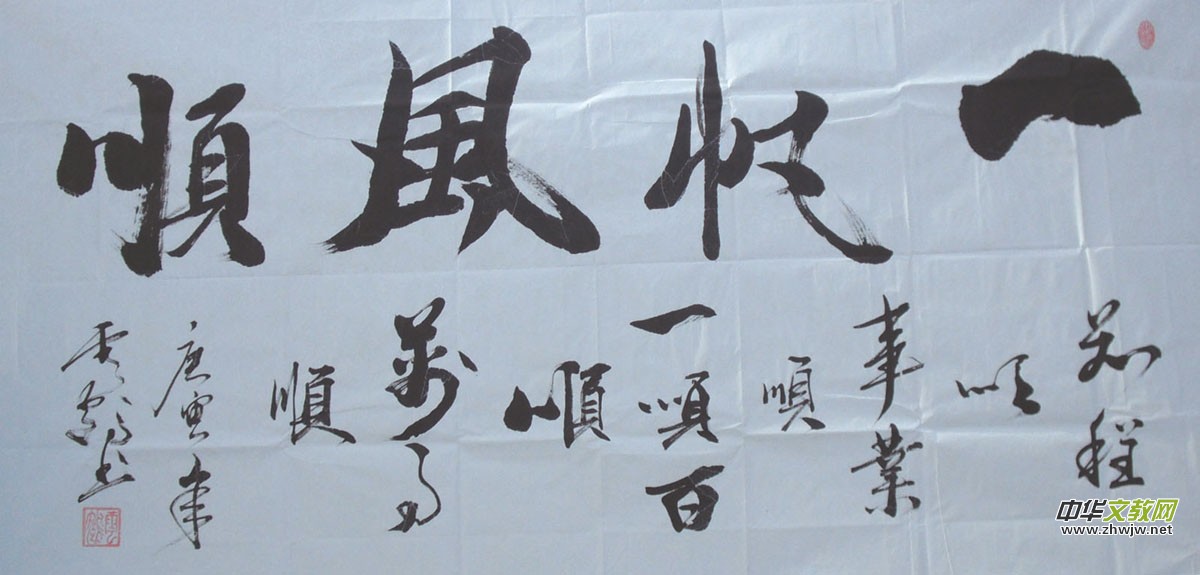 一帆風順
前程
順
事業
順
一順百
順
萬事
順
庚寅年
雲鶴書
中华文教网
www.zhwjw.net